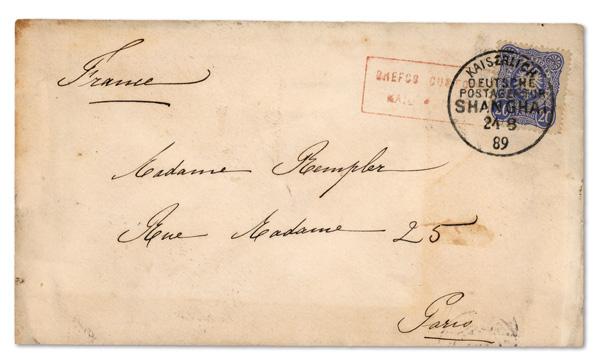 France
CHEFOO CUS
MAI
KAISERLICH
DEUTSCHE
POSTAGENTUR
SHANGHAI
24 8
89
20
Madame Rempler
Rue Madame 25
Paris